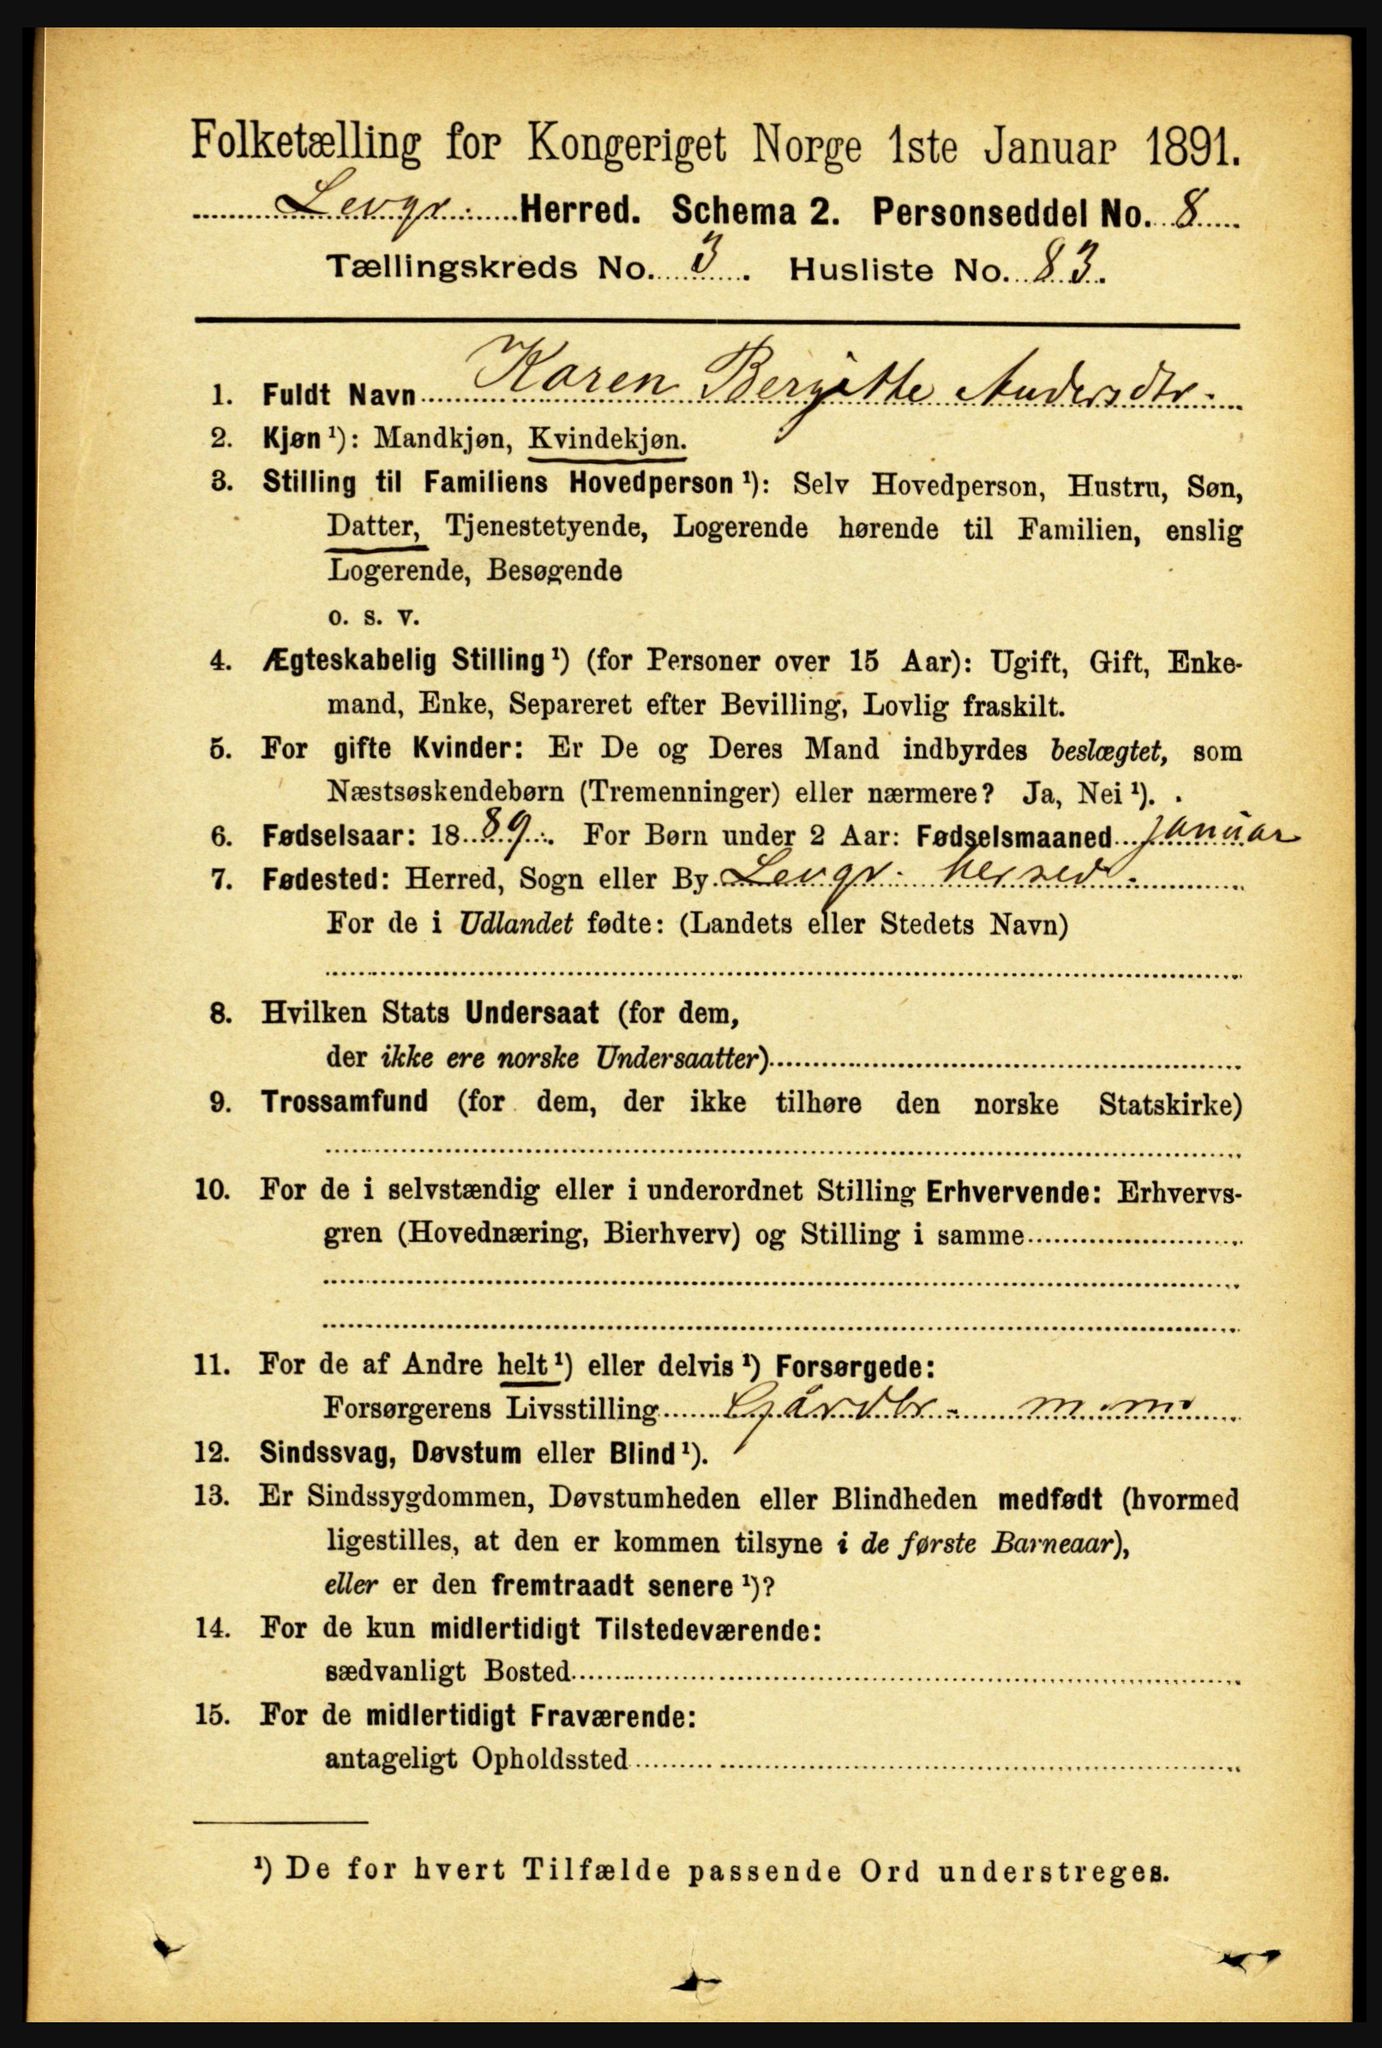 Folketælling for Kongeriget Norge 1ste Januar 1891.
Levgr. Herred. Schema 2. Personseddel No. 8
Tællingskreds No. 3. Husliste No. 83.
1. Fuldt Navn Karen Bergitte Andersdtr.
2. Kjøn ¹): Mandkjøn, Kvindekjøn.
3. Stilling til Familiens Hovedperson ¹): Selv Hovedperson, Hustru, Søn,
Datter, Tjenestetyende, Logerende hørende til Familien, enslig
Logerende, Besøgende
o. s. v.
4. Ægteskabelig Stilling ¹) (for Personer over 15 Aar): Ugift, Gift, Enke-
mand, Enke, Separeret efter Bevilling, Lovlig fraskilt.
5. For gifte Kvinder: Er De og Deres Mand indbyrdes beslægtet, som
Næstsøskendebørn (Tremenninger) eller nærmere? Ja, Nei ¹).
6. Fødselsaar: 1889. For Børn under 2 Aar: Fødselsmaaned januar
7. Fødested: Herred, Sogn eller By Levgr. herred.
For de i Udlandet fødte: (Landets eller Stedets Navn)
8. Hvilken Stats Undersaat (for dem,
der ikke ere norske Undersaatter)
9. Trossamfund (for dem, der ikke tilhøre den norske Statskirke)
10. For de i selvstændig eller i underordnet Stilling Erhvervende: Erhvervs-
gren (Hovednæring, Bierhverv) og Stilling i samme
11. For de af Andre helt ¹) eller delvis ¹) Forsørgede:
Forsørgerens Livsstilling Gårdbr. m.m.
12. Sindssvag, Døvstum eller Blind ¹).
13. Er Sindssygdommen, Døvstumheden eller Blindheden medfødt (hvormed
ligestilles, at den er kommen tilsyne i de første Barneaar),
eller er den fremtraadt senere ¹)?
14. For de kun midlertidigt Tilstedeværende:
sædvanligt Bosted
15. For de midlertidigt Fraværende:
antageligt Opholdssted
¹) De for hvert Tilfælde passende Ord understreges.